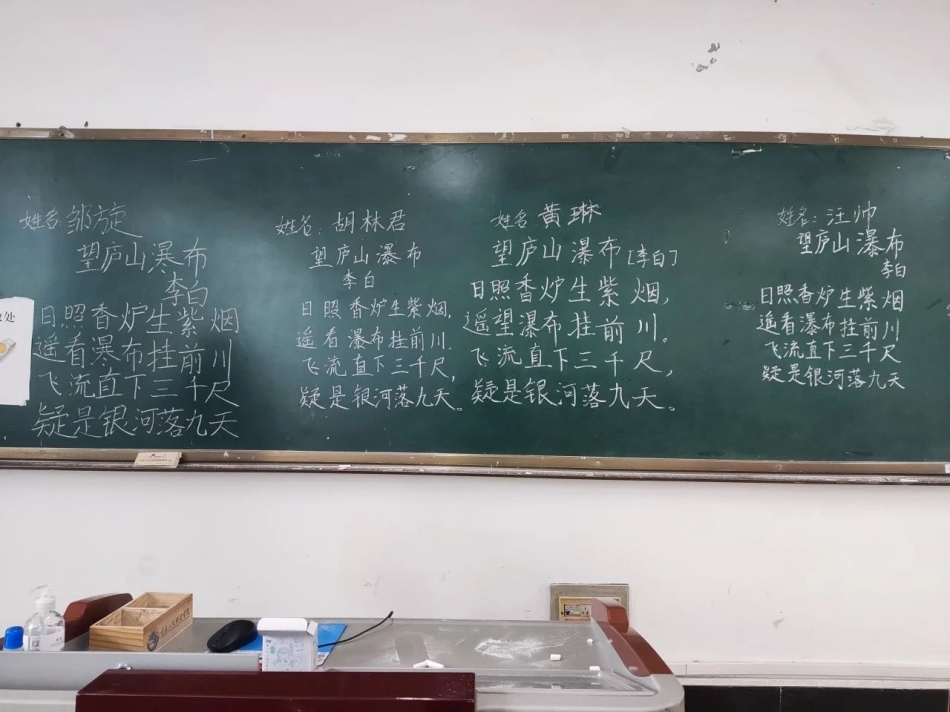 姓名:邹旋
望庐山瀑布
李白
日照香炉生紫烟
遥看瀑布挂前川
飞流直下三千尺
疑是银河落九天
姓名:胡林君
望庐山瀑布
李白
日照香炉生紫烟,
遥看瀑布挂前川.
飞流直下三千尺,
疑是银河落九天。
姓名:黄琳
望庐山瀑布[李白]
日照香炉生紫烟,
遥望瀑布挂前川。
飞流直下三千尺,
疑是银河落九天。
姓名:汪帅
望庐山瀑布
李白
日照香炉生紫烟
遥看瀑布挂前川
飞流直下三千尺
疑是银河落九天
处